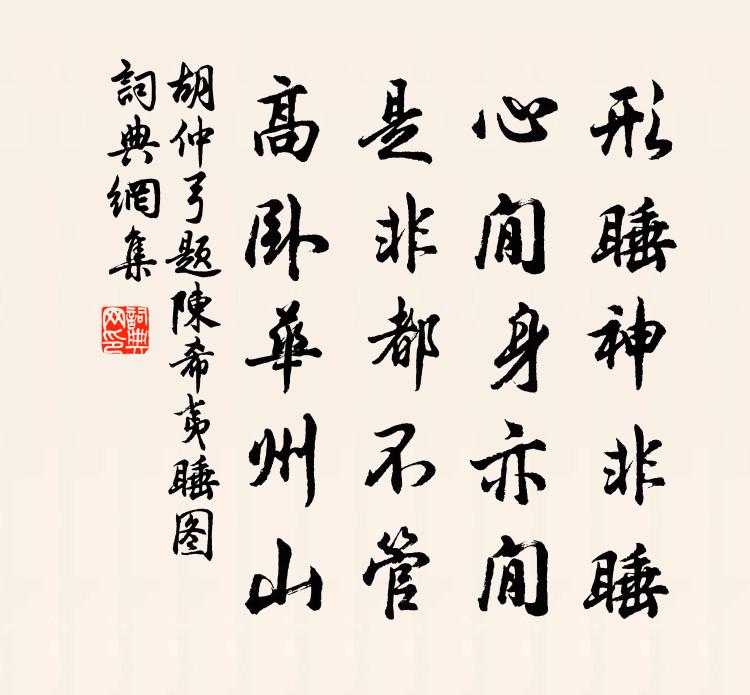 形睡神非睡
心閒身亦閒
是非都不管
高卧華州山
胡仲弓题陳希夷睡图
詞典網集
詞典网印